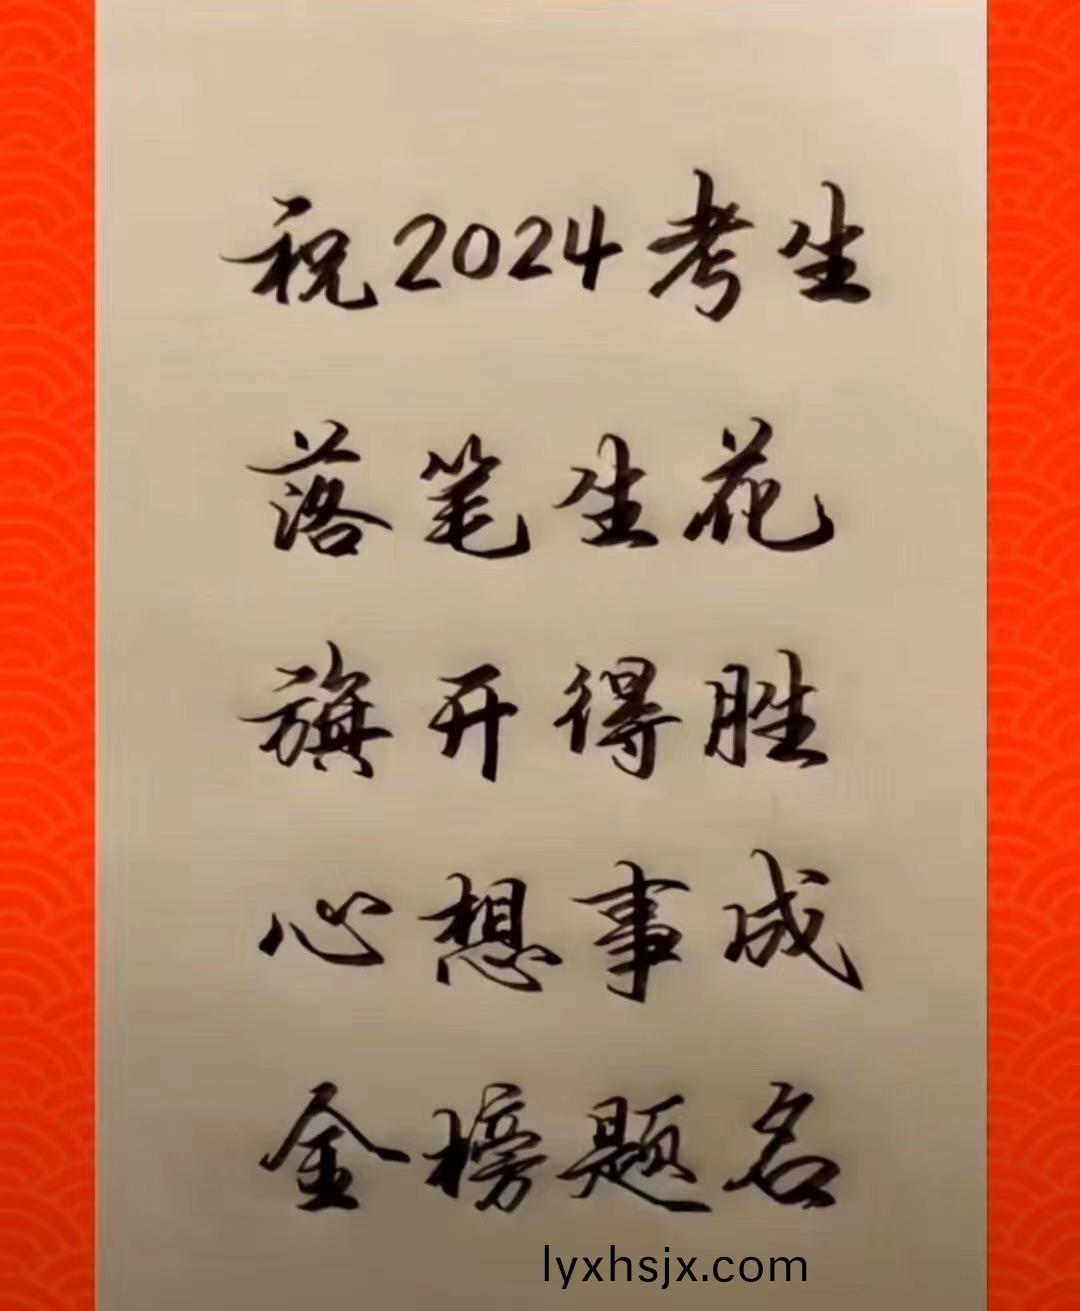 祝2024考生
落笔生花
旗开得胜
心想事成
金榜题名
lyxhsjx.com